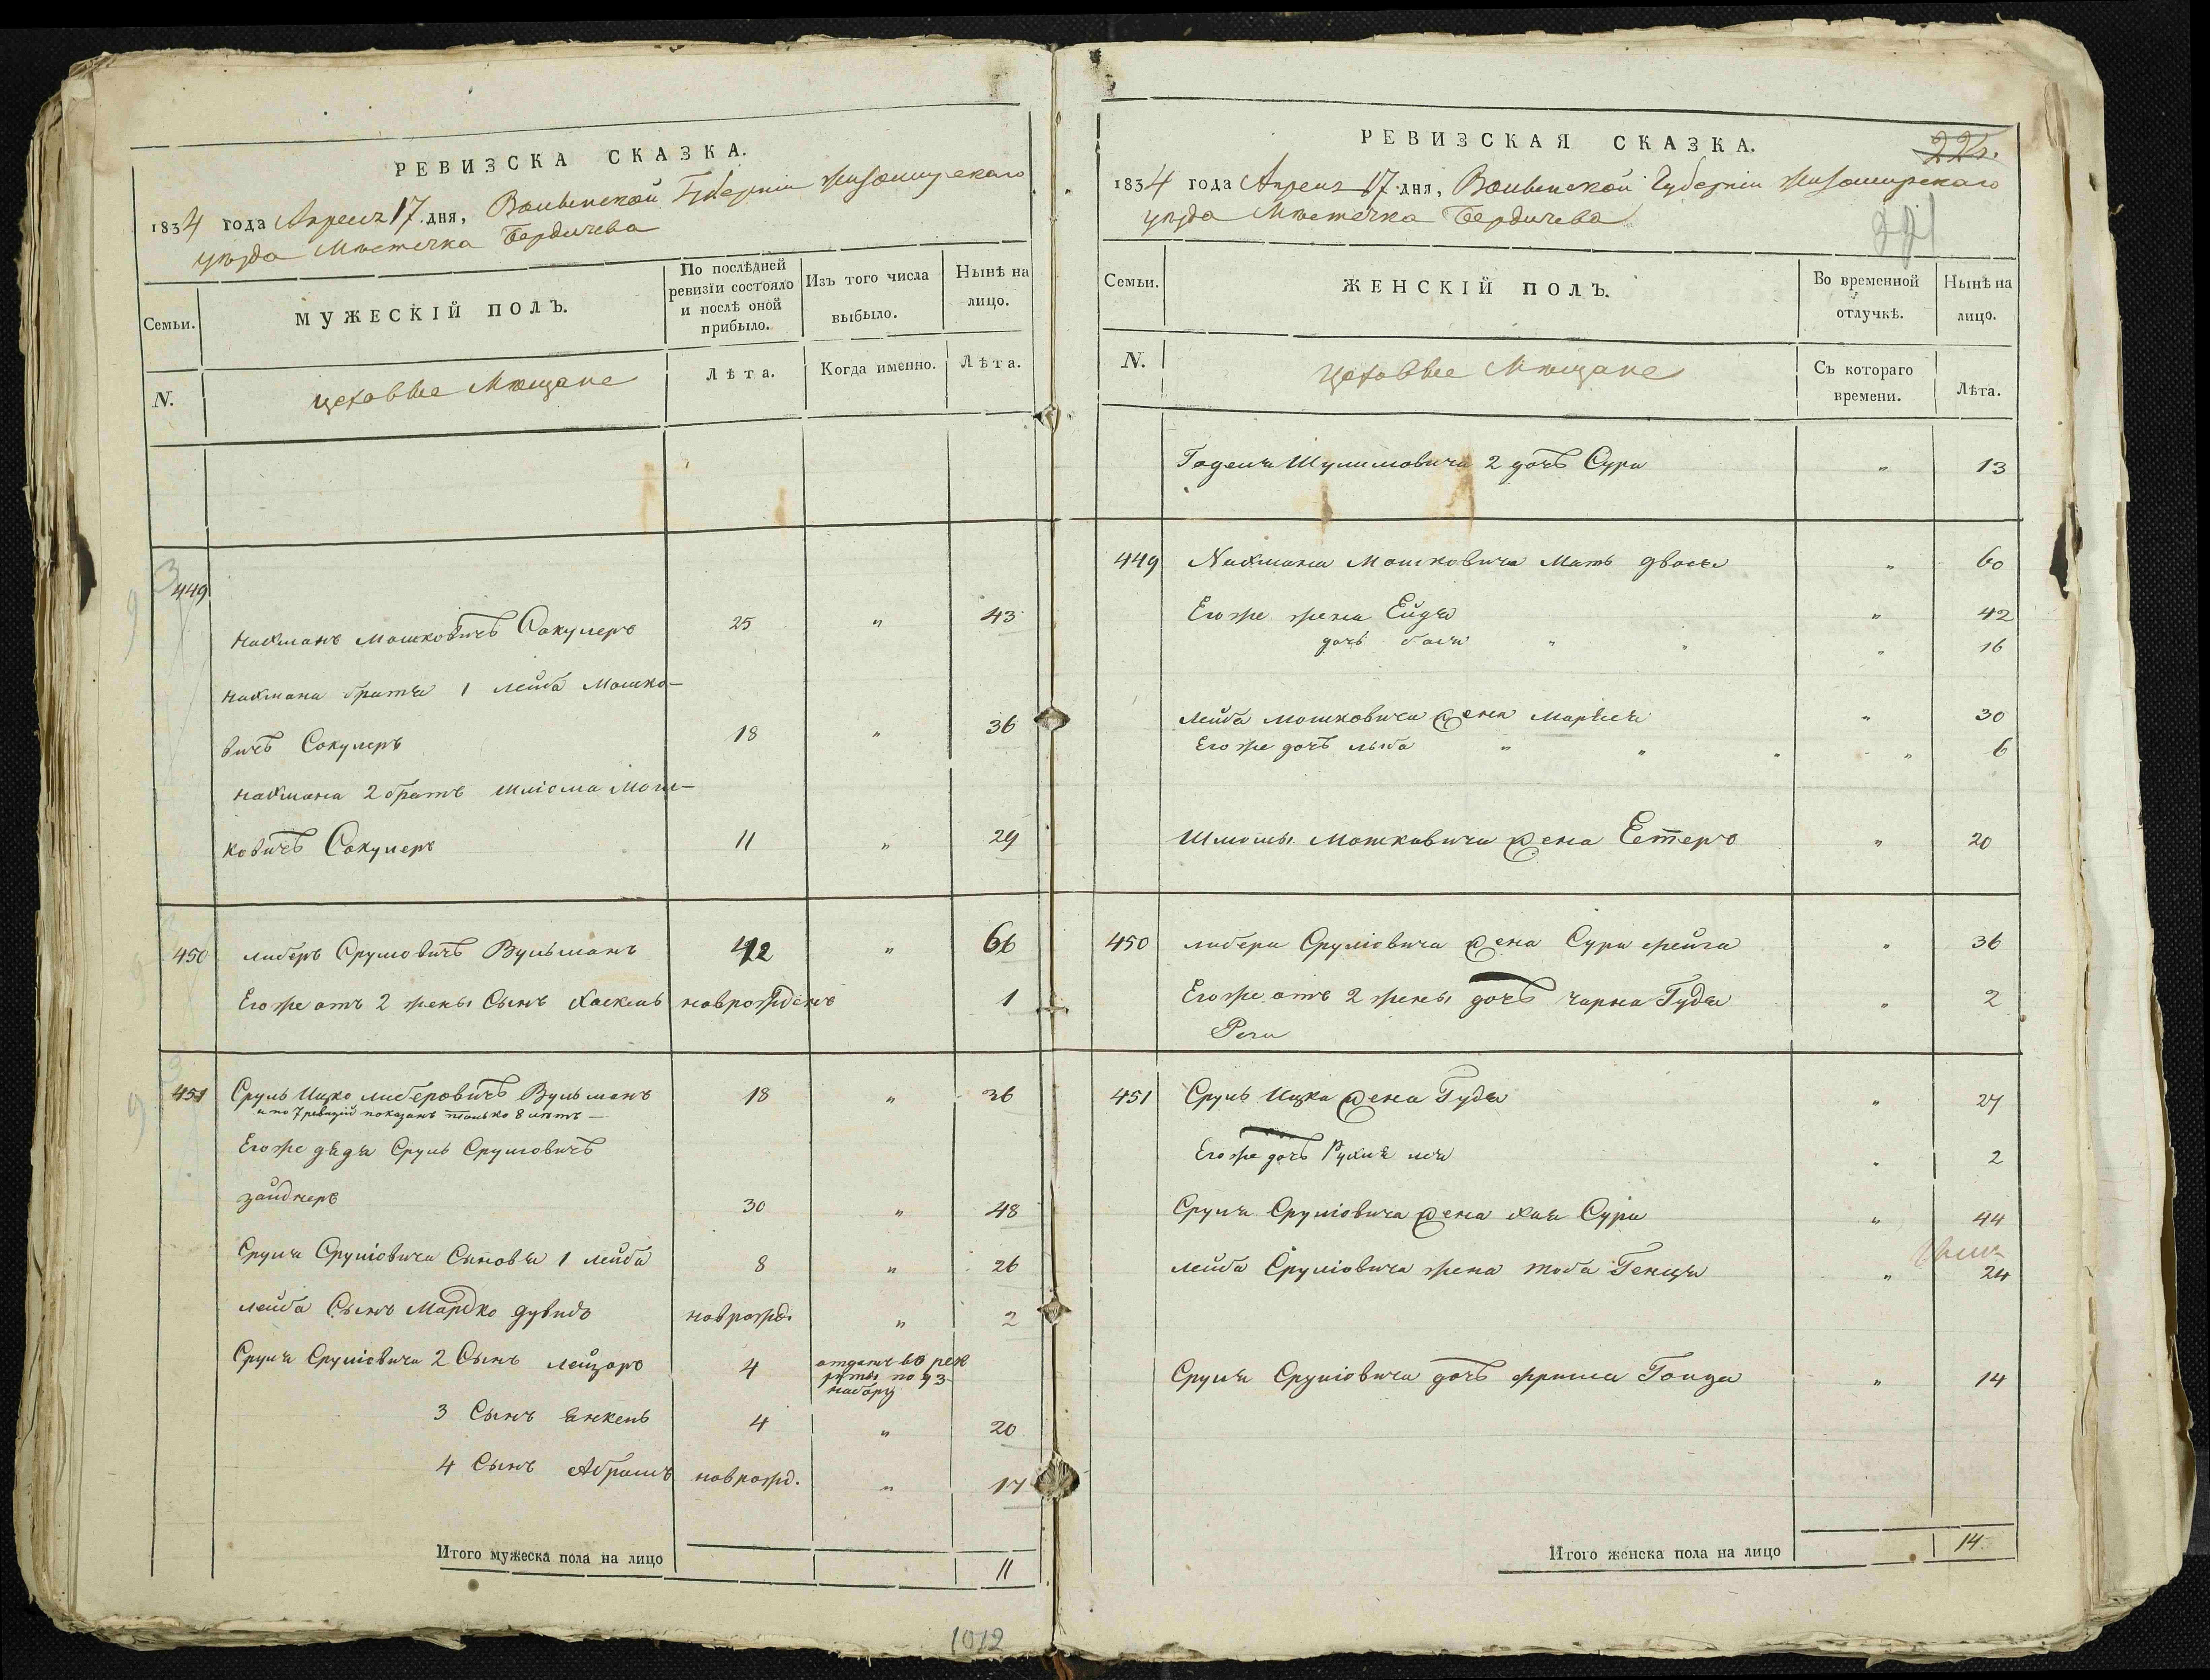 РЕВИЗСКА СКАЗКА.
1834 года Апреля 17 дня, Волынской Губерніи Житомирскаго
уѣзда Мѣстечка Бердичева
Семьи.
МУЖЕСКІЙ ПОЛЪ.
По послѣдней ревизіи состояло и послѣ оной прибыло.
Изъ того числа выбыло.
Нынѣ на лицо.
N.
цеховые Мѣщане
Лѣта.
Когда именно.
Лѣта.
449
Нахманъ Мошковичъ Сокулеръ 25 " 43
Нахмана братья 1 Лейба Мошко-
вичъ Сокулеръ 18 " 36
Нахмана 2 братъ Шліома Мош-
ковичъ Сокулеръ 11 " 29
450 Либеръ Сруліовичъ Вульманъ 42 " 66
Его же отъ 2 жены Сынъ Хаскель новрожденъ 1
451 Сруль Ицко Либеровичъ Вульманъ 18 " 36
и по 7 ревизіи показанъ только 8 лѣтъ —
Его же дядя Сруль Сруліовичъ
Зайднеръ 30 " 48
Сруля Сруліовича Сыновья 1 Лейба 8 " 26
Лейба Сынъ Мардко Дувидъ новрожд. " 2
Сруля Сруліовича 2 Сынъ Лейзоръ 4
отданъ въ рек
руты по 93
набору
3 Сынъ Янкель 4 " 20
4 Сынъ Абрамъ новрожд. " 17
Итого мужеска пола на лицо 11
1012
РЕВИЗСКАЯ СКАЗКА.
1834 года Апреля 17 дня, Волынской Губерніи Житомирскаго
уѣзда Мѣстечка Бердичева
Семьи.
ЖЕНСКІЙ ПОЛЪ.
Во временной отлучкѣ.
Нынѣ на лицо.
N.
Цеховые Мѣщане
Съ котораго времени.
Лѣта.
Годеля Шулимовича 2 дочь Сура " 13
449 Нахмана Мошковича Мать Двося " 60
Его же жена Ейдя " 42
дочь Бася " " " 16
Лейба Мошковича жена Маріася " 30
Его же дочь Лыба " " " " 6
Шліомы Мошковича жена Естеръ " 20
450 Либера Сруліовича жена Сура Фейга " 36
Его же отъ 2 жены дочь Чарна Гудя " 2
451 Сруль Ицка жена Гудя " 27
Его же дочь Рухля Лея " 2
Сруля Сруліовича жена Хая Сура " 44
Лейба Сруліовича жена Тоба Генця " 24
Сруля Сруліовича дочь Фрима Голда " 14
Итого женска пола на лицо 14